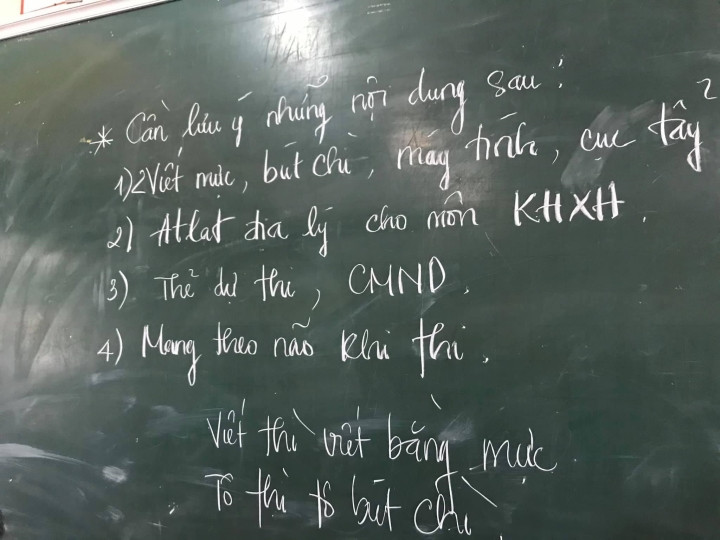 * Cần lưu ý những nội dung sau:
1) 2 Viết mực, bút chì, máy tính, cục tẩy
2) Atlat địa lý cho môn KHXH.
3) Thẻ dự thi, CMND.
4) Mang theo não khi thi.
Viết thì viết bằng mực
Tô thì tô bút chì.